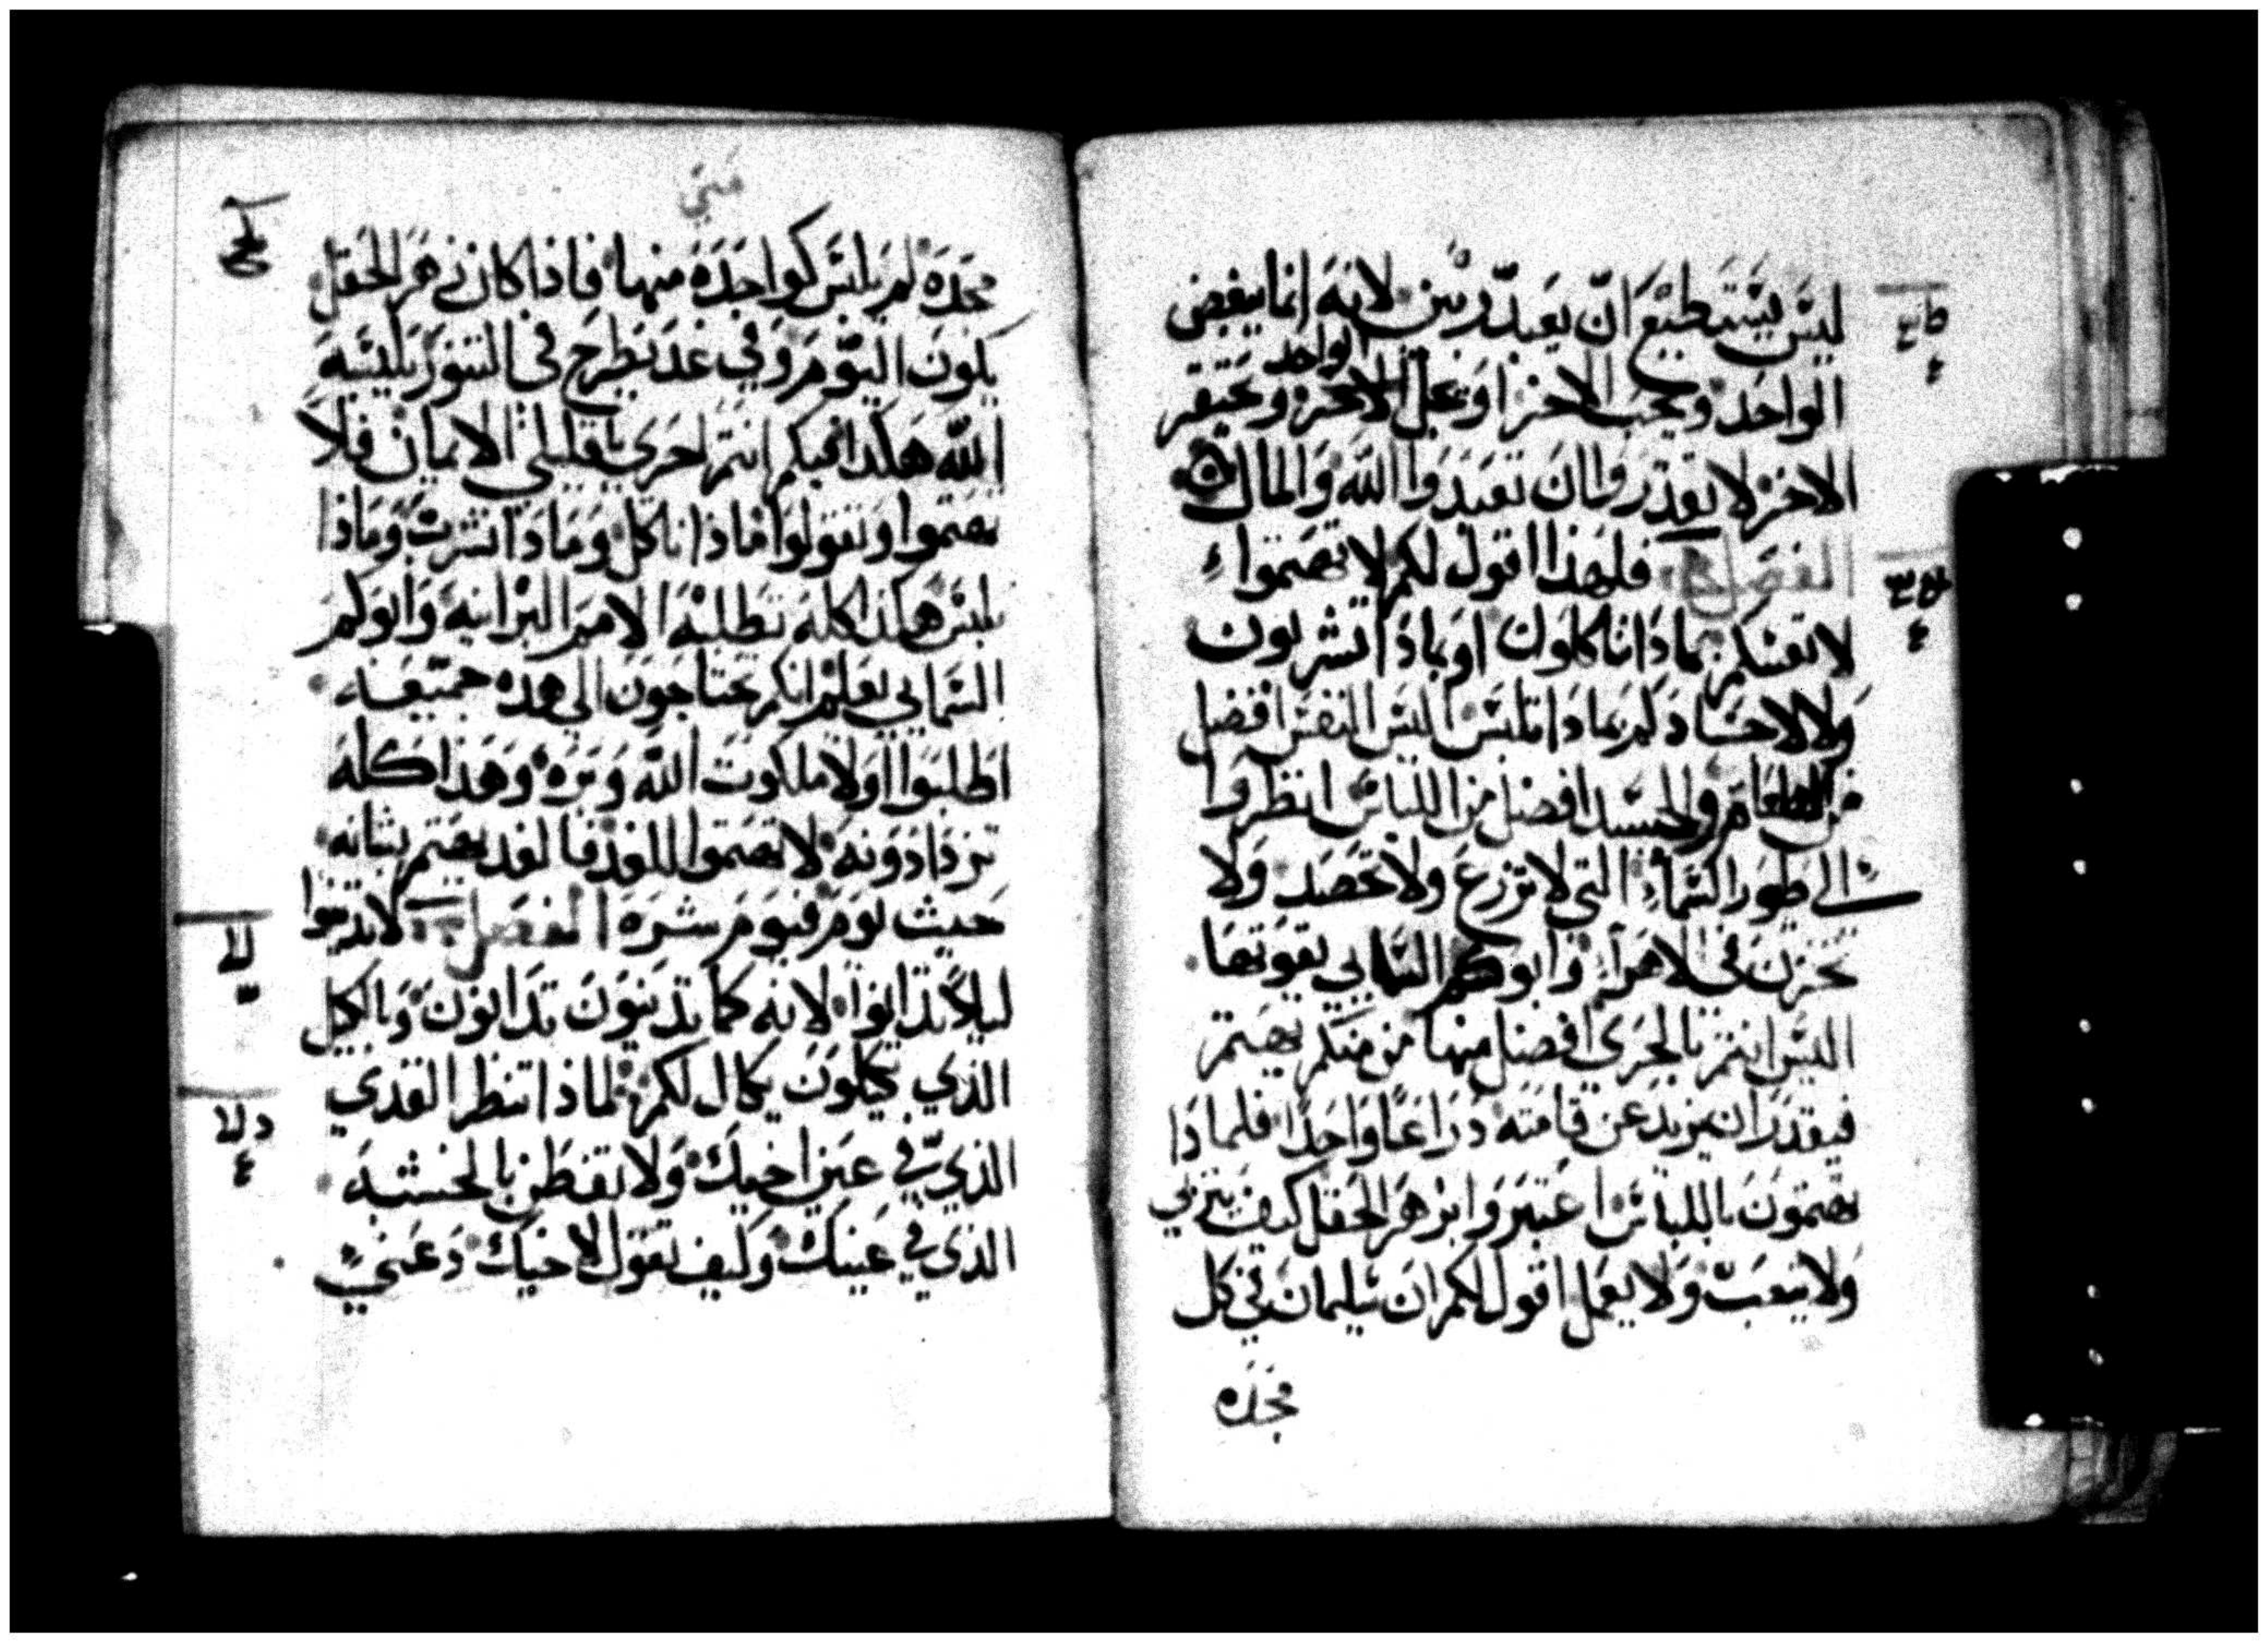 ليس يستطيع ان يعبد ربين لانه انما يبغض
الواحد ويحب الاخر او يجل الواحد ويحتقر
الاخر لا تقدروا ان تعبدوا الله والمال
الفصل فلهذا اقول لكم لا تهتموا
لانفسكم بماذا تاكلون او بماذا تشربون
ولا لاجسادكم بماذا تلبس اليس النفس افضل
من الطعام والجسد افضل من اللباس انظروا
الى طيور السماء التي لا تزرع ولا تحصد ولا
تخزن في الاهراء وابوكم السمايي يقوتها
اليس انتم بالحري افضل منها من منكم يهتم
فيقدر ان يزيد عن قامته ذراعا واحدا فلماذا
تهتمون باللباس اعتبروا بزهر الحقل كيف يتربي
ولا يتعب ولا يعمل اقول لكم ان سليمان في كل
مجده
متي
مجده لم يلبس كواحدة منها فاذا كان زهر الحقل
يكون اليوم وفي غد يطرح في التنور يلبسه
الله هكذا فبكم انتم احرى يا قليلي الايمان فلا
تهتموا وتقولوا ماذا ناكل وماذا نشرب وماذا
نلبس هكذا كله تطلبه الامم البرانيه وابوكم
السمايي يعلم انكم تحتاجون الي هذه جميعه
اطلبوا اولا ملكوت الله وبره وهذا كله
تزدادونه لا تهتموا للغد فالغد يهتم بشانه
حيث يوم فيوم شره الفصل لا تدينوا
ليلا تدانوا لانه كما تدينون تدانون وبالكيل
الذي تكيلون يكال لكم لماذا تنظر القذي
الذي في عين اخيك ولا تفطن بالخشبه
الذي في عينك وكيف تقول لاخيك دعني